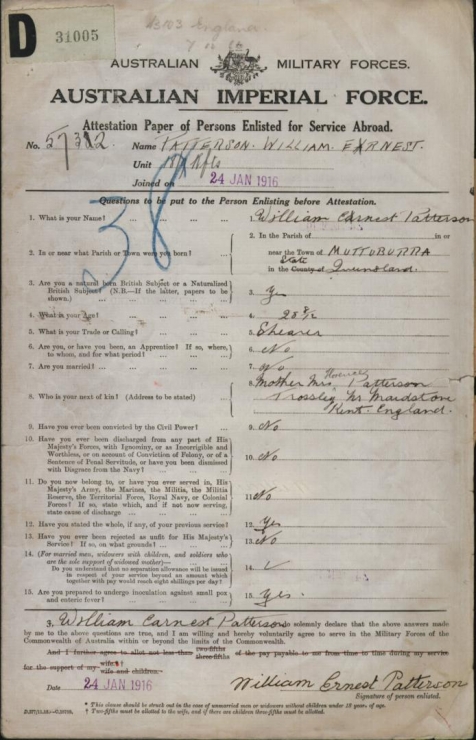 D 31005
AUSTRALIAN MILITARY FORCES.
AUSTRALIAN IMPERIAL FORCE.
Attestation Paper of Persons Enlisted for Service Abroad.
No. Name PATTERSON. WILLIAM. EARNEST.
Unit
Joined on 24 JAN 1916
38
Questions to be put to the Person Enlisting before Attestation.
1. What is your Name? ... 1. William Earnest Patterson
2. In or near what Parish or Town were you born? ... 2. In the Parish of in or
near the Town of MUTTUBURRA
State
in the County of Queensland
3. Are you a natural born British Subject or a Naturalised
British Subject? (N.B.—If the latter, papers to be
shown.) 3. Yes
4. What is your Age? ... 4. 28
5. What is your Trade or Calling? ... 5. Shearer
6. Are you, or have you been, an Apprentice? If so, where,
to whom, and for what period? 6. No
7. Are you married? ... 7. No
8. Who is your next of kin? (Address to be stated) 8. Mother Mrs Patterson
Trossley Nr Maidstone
Kent. England.
9. Have you ever been convicted by the Civil Power? ... 9. No
10. Have you ever been discharged from any part of His
Majesty's Forces, with Ignominy, or as Incorrigible and
Worthless, or on account of Conviction of Felony, or of a
Sentence of Penal Servitude, or have you been dismissed
with Disgrace from the Navy? 10. No
11. Do you now belong to, or have you ever served in, His
Majesty's Army, the Marines, the Militia, the Militia
Reserve, the Territorial Force, Royal Navy, or Colonial
Forces? If so, state which, and if not now serving,
state cause of discharge 11. No
12. Have you stated the whole, if any, of your previous service? 12. Yes
13. Have you ever been rejected as unfit for His Majesty's
Service? If so, on what grounds? 13. No
14. (For married men, widowers with children, and soldiers who
are the sole support of widowed mother)—
Do you understand that no separation allowance will be issued
in respect of your service beyond an amount which
together with pay would reach eight shillings per day? 14. ✓
15. Are you prepared to undergo inoculation against small pox
and enteric fever? 15. Yes.
3. William Earnest Patterson solemnly declare that the above answers made
by me to the above questions are true, and I am willing and hereby voluntarily agree to serve in the Military Forces of the
Commonwealth of Australia within or beyond the limits of the Commonwealth.
And I further agree to allot not less than two-fifths three-fifths of the pay payable to me from time to time during my service
for the support of my wife wife and children.
Date 24 JAN 1916 William Ernest Patterson
Signature of person enlisted.
* This clause should be struck out in the case of unmarried men or widowers without children under 18 years of age.
† Two-fifths must be allotted to the wife, and if there are children three-fifths must be allotted.